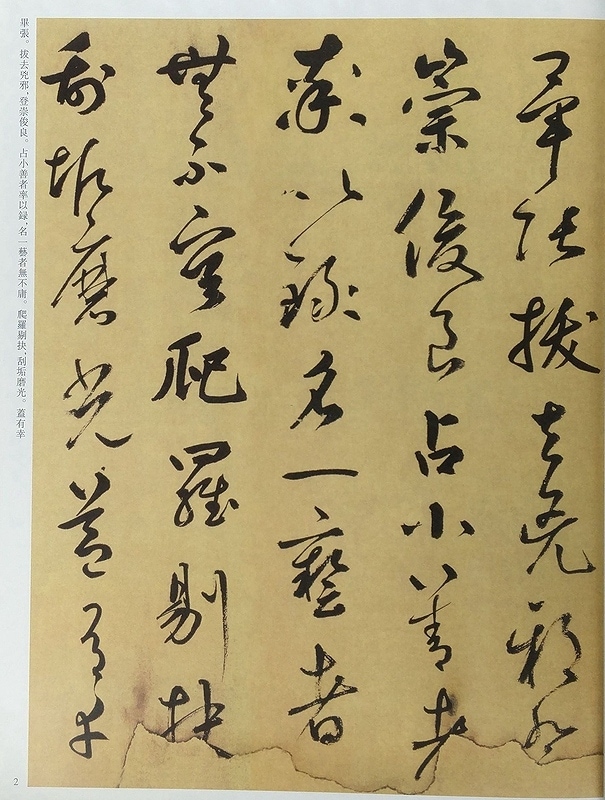 畢張拔去兇邪登
崇俊良占小善者
率以錄名一藝者
無不庸爬羅剔抉
刮垢磨光蓋有幸
畢張。拔去兇邪，登崇俊良。占小善者率以録，名一藝者無不庸。爬羅剔抉，刮垢磨光。蓋有幸
2